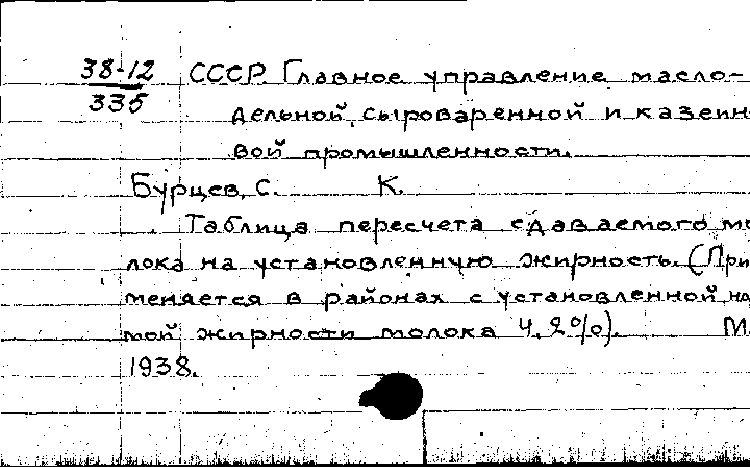 38-12 СССР. Главное управление масло-
335 дельной, сыроваренной и казеин
вой промышленности.
Бурцев, С. К.
Таблица пересчета сдаваемого мо
лока на установленную жирность. (При
меняется в районах с установленной на
мой жирности молока 4,2%). М.
1938.